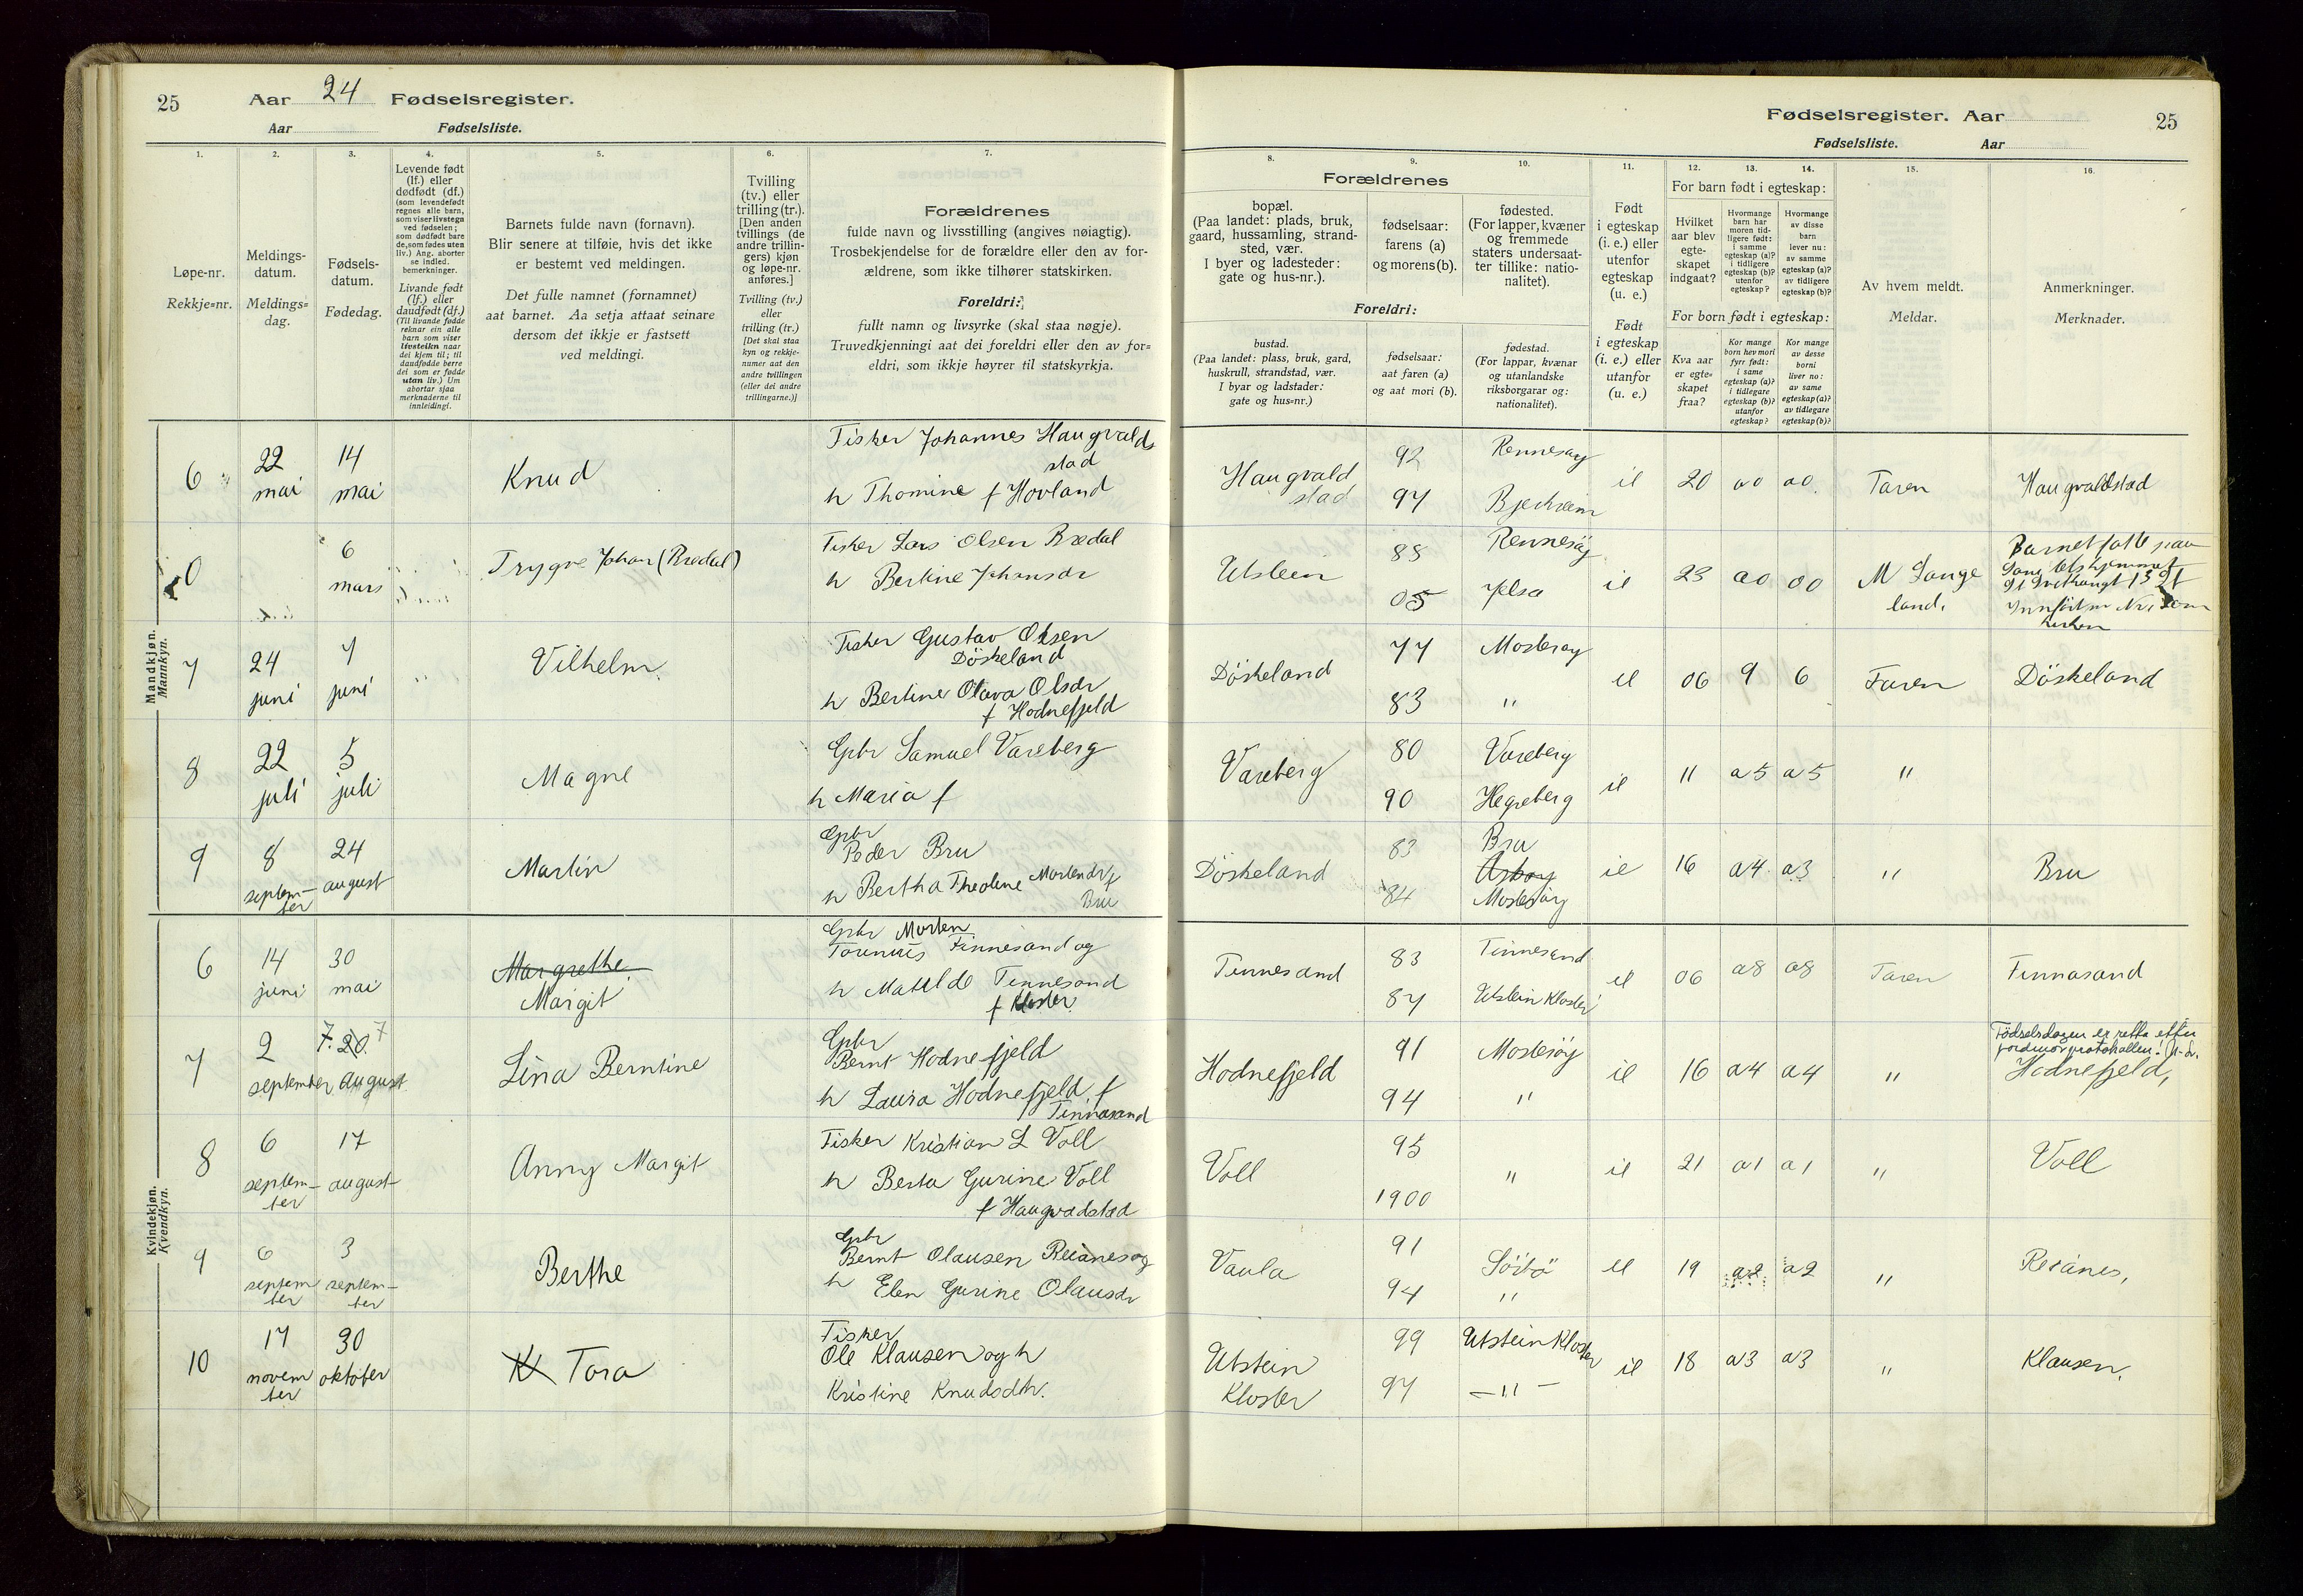 25 Aar 24 Fødselsregister.
Aar Fødselsliste.
1.
2.
3.
4.
5.
6.
7.
Løpe-nr.
Rekkje=nr.
Meldings-
datum.
Meldings=
dag.
Fødsels-
datum.
Fødedag.
Levende født
(lf.) eller
dødfødt (df.)
(som levendefødt
regnes alle barn,
som viser livstegn
ved fødselen;
som dødfødt bare
de, som fødes uten
liv.) Ang. aborter
se indled.
bemerkninger.
Livande født
(lf.) eller
daudfødt (df.)
(Til livande fødde
reknar ein alle
barn som viser
livsteikn naar
dei kjem til; til
daudfødde berre
dei som er fødde
utan liv.) Um
abortar sjaa
merknaderne til
innleidingi.
Barnets fulde navn (fornavn).
Blir senere at tilføie, hvis det ikke
er bestemt ved meldingen.
Det fulle namnet (fornamnet)
aat barnet. Aa setja attaat seinare
dersom det ikkje er fastsett
ved meldingi.
Tvilling
(tv.) eller
trilling (tr.).
[Den anden
tvillings (de
andre trillin-
gers) kjøn
og løpe-nr.
anføres.]
Tvilling (tv.)
eller
trilling (tr.)
[Det skal staa
kyn og rekkje-
numer aat den
andre tvillingen
(eller dei andre
trillingarne.)]
Forældrenes
fulde navn og livsstilling (angives nøiagtig).
Trosbekjendelse for de forældre eller den av for-
ældrene, som ikke tilhører statskirken.
Foreldri:
fullt namn og livsyrke (skal staa nøgje).
Truvedkjenningi aat dei foreldri eller den av for=
eldri, som ikkje høyrer til statskyrkja.
Mandkjøn.
Mannkyn.
6
22
mai
14
mai
Knud
Fisker Johannes Haugvalds
stad
h Thomine f Hovland
0
6
mars
Trygve Johan (Brædal)
Fisker Lars Olsen Brædal
h Bertine Johansdr
7
24
juni
7
juni
Vilhelm.
Fisker Gustav Olsen
Döskeland
h Bertine Olava Olsdr
f Hodnefjeld
8
22
juli
5
juli
Magne
Gpbr Samuel Vareberg
h Maria f
9
8
septem-
ber
24
august
Martin
Gpbr
Peder Bru
h Bertha Theoline Mortendr f
Bru
Kvindekjøn.
Kvendkyn.
6
14
juni
30
mai
Margrethe
Margit
Gpbr Morten
Torenius Finnesand og
h Matilde Finnesand
f Kloster
7
2
september
7. 20. 7
august
Lina Berntine
Gpbr
Bernt Hodnefjeld
h Laura Hodnefjeld f
Finnasand
8
6
septem-
ber
17
august
Anny Margit
Fisker Kristian L Voll
h Berta Gurine Voll
f Haugvadstad
9
6
septem
ber
3
septem-
ber
Berthe
Gpbr
Bernt Olausen Reianes og
h Elen Gurine Olausdr
10
17
novem
ber
30
oktober
K Tora
Fisker
Ole Klausen og h
Kristine Knudsdtr.
Fødselsregister. Aar 25
Fødselsliste. Aar
8.
9.
10.
11.
12.
13.
14.
15.
16.
Forældrenes
bopæl.
(Paa landet: plads, bruk,
gaard, hussamling, strand-
sted, vær.
I byer og ladesteder:
gate og hus-nr.).
fødselsaar:
farens (a)
og morens (b).
fødested.
(For lapper, kvæner
og fremmede
staters undersaat-
ter tillike: natio-
nalitet).
Foreldri:
bustad.
(Paa landet: plass, bruk, gard,
huskrull, strandstad, vær.
I byar og ladstader:
gate og hus=nr.)
fødselsaar:
aat faren (a)
og aat mori (b).
fødestad.
(For lappar, kvænar
og utanlandske
riksborgarar og:
nationalitet).
Født
i egteskap
(i. e.) eller
utenfor
egteskap
(u. e.)
Født
i egteskap
(i. e.) eller
utanfor
(u. e.)
For barn født i egteskap:
Hvilket
aar blev
egte-
skapet
indgaat?
Hvormange
barn har
moren tid-
ligere født:
i samme
egteskap (a)?
i tidligere
egteskap (b)?
utenfor
egteskap?
Hvormange
av disse
barn
lever nu:
av samme
egteskap (a)?
av tidligere
egteskap (b)?
For born født i egteskap:
Kva aar
er egte=
skapet
fraa?
Kor mange
born hev mori
fyrr født:
i same
egteskap (a)?
i tidlegare
egteskap (b)?
utanfor
egteskap?
Kor mange
av desse
borni
liver no:
av same
egteskap (a)?
av tidlegare
egteskap (b)?
Av hvem meldt.
Meldar.
Anmerkninger.
Merknader.
Haugvald
stad
92
97
Rennesøy
Bjerkreim
ie
20
a0
a0
Faren
Haugvaldstad
Utstein
88
05
Rennesöy
Jelsa
ie
23
a0
00
M Lange
land.
Barnet født paa
Döskeland
77
83
Mosterøy
"
ie
06
9
6
Faren
Döskeland
Vareberg
80
90
Vareberg
Hegreberg
ie
11
a5
a5
"
Döskeland
83
84
Bru
Askøy
Mosterøy
ie
16
a4
a3
"
Bru
Finnesand
83
87
Finnesand
Utstein Kloster
ie
06
a8
a8
Faren
Finnasand
Hodnefjeld
91
94
Mosterøy
"
ie
16
a4
a4
"
Födselsdagen er retta etter
jordmorprotokollen!
Hodnefjeld,
Voll
95
1900
"
ie
21
a1
a1
"
Voll
Vaula
91
94
Sörbö
"
ie
19
a2
a2
"
Reianes,
Utstein
Kloster
99
97
Utstein Kloster
— " —
ie
18
a3
a3
"
Klausen.